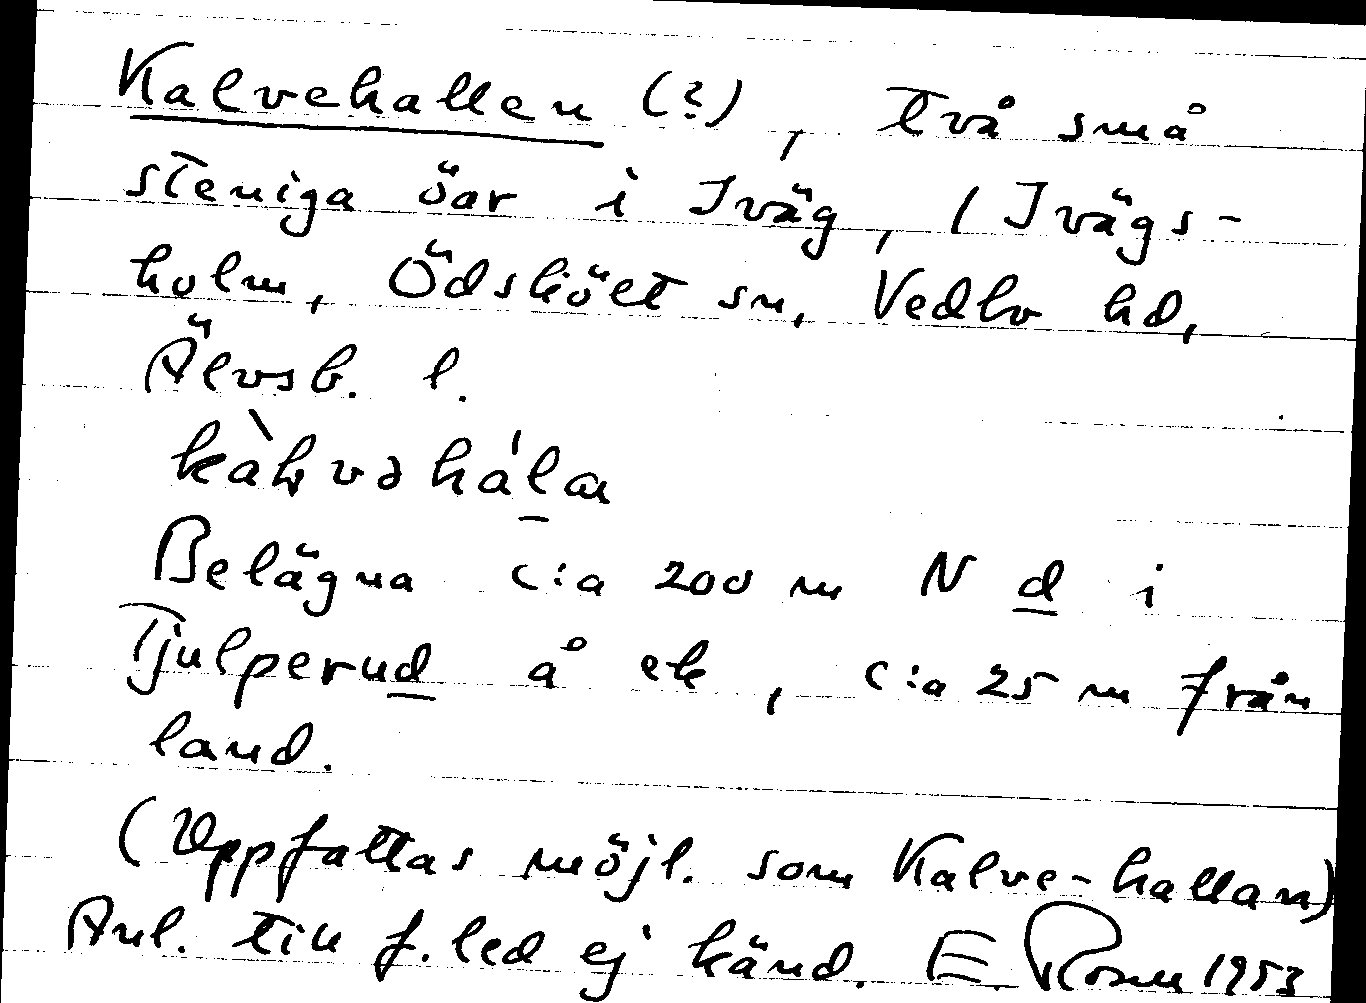 Kalvehallen (?), två små
steniga öar i Iväg, (Ivägs-
holm, Ödsköelt sn, Vedbo hd,
Älvsb. l.
kàḷvəhál̲a
Belägna c:a 200 m N d̲ i
Tjulperud̲ å ek, c:a 25 m från
land.
(Uppfattas möjl. som Kalve-hallan)
Anl. till f. led ej känd. E. 1953